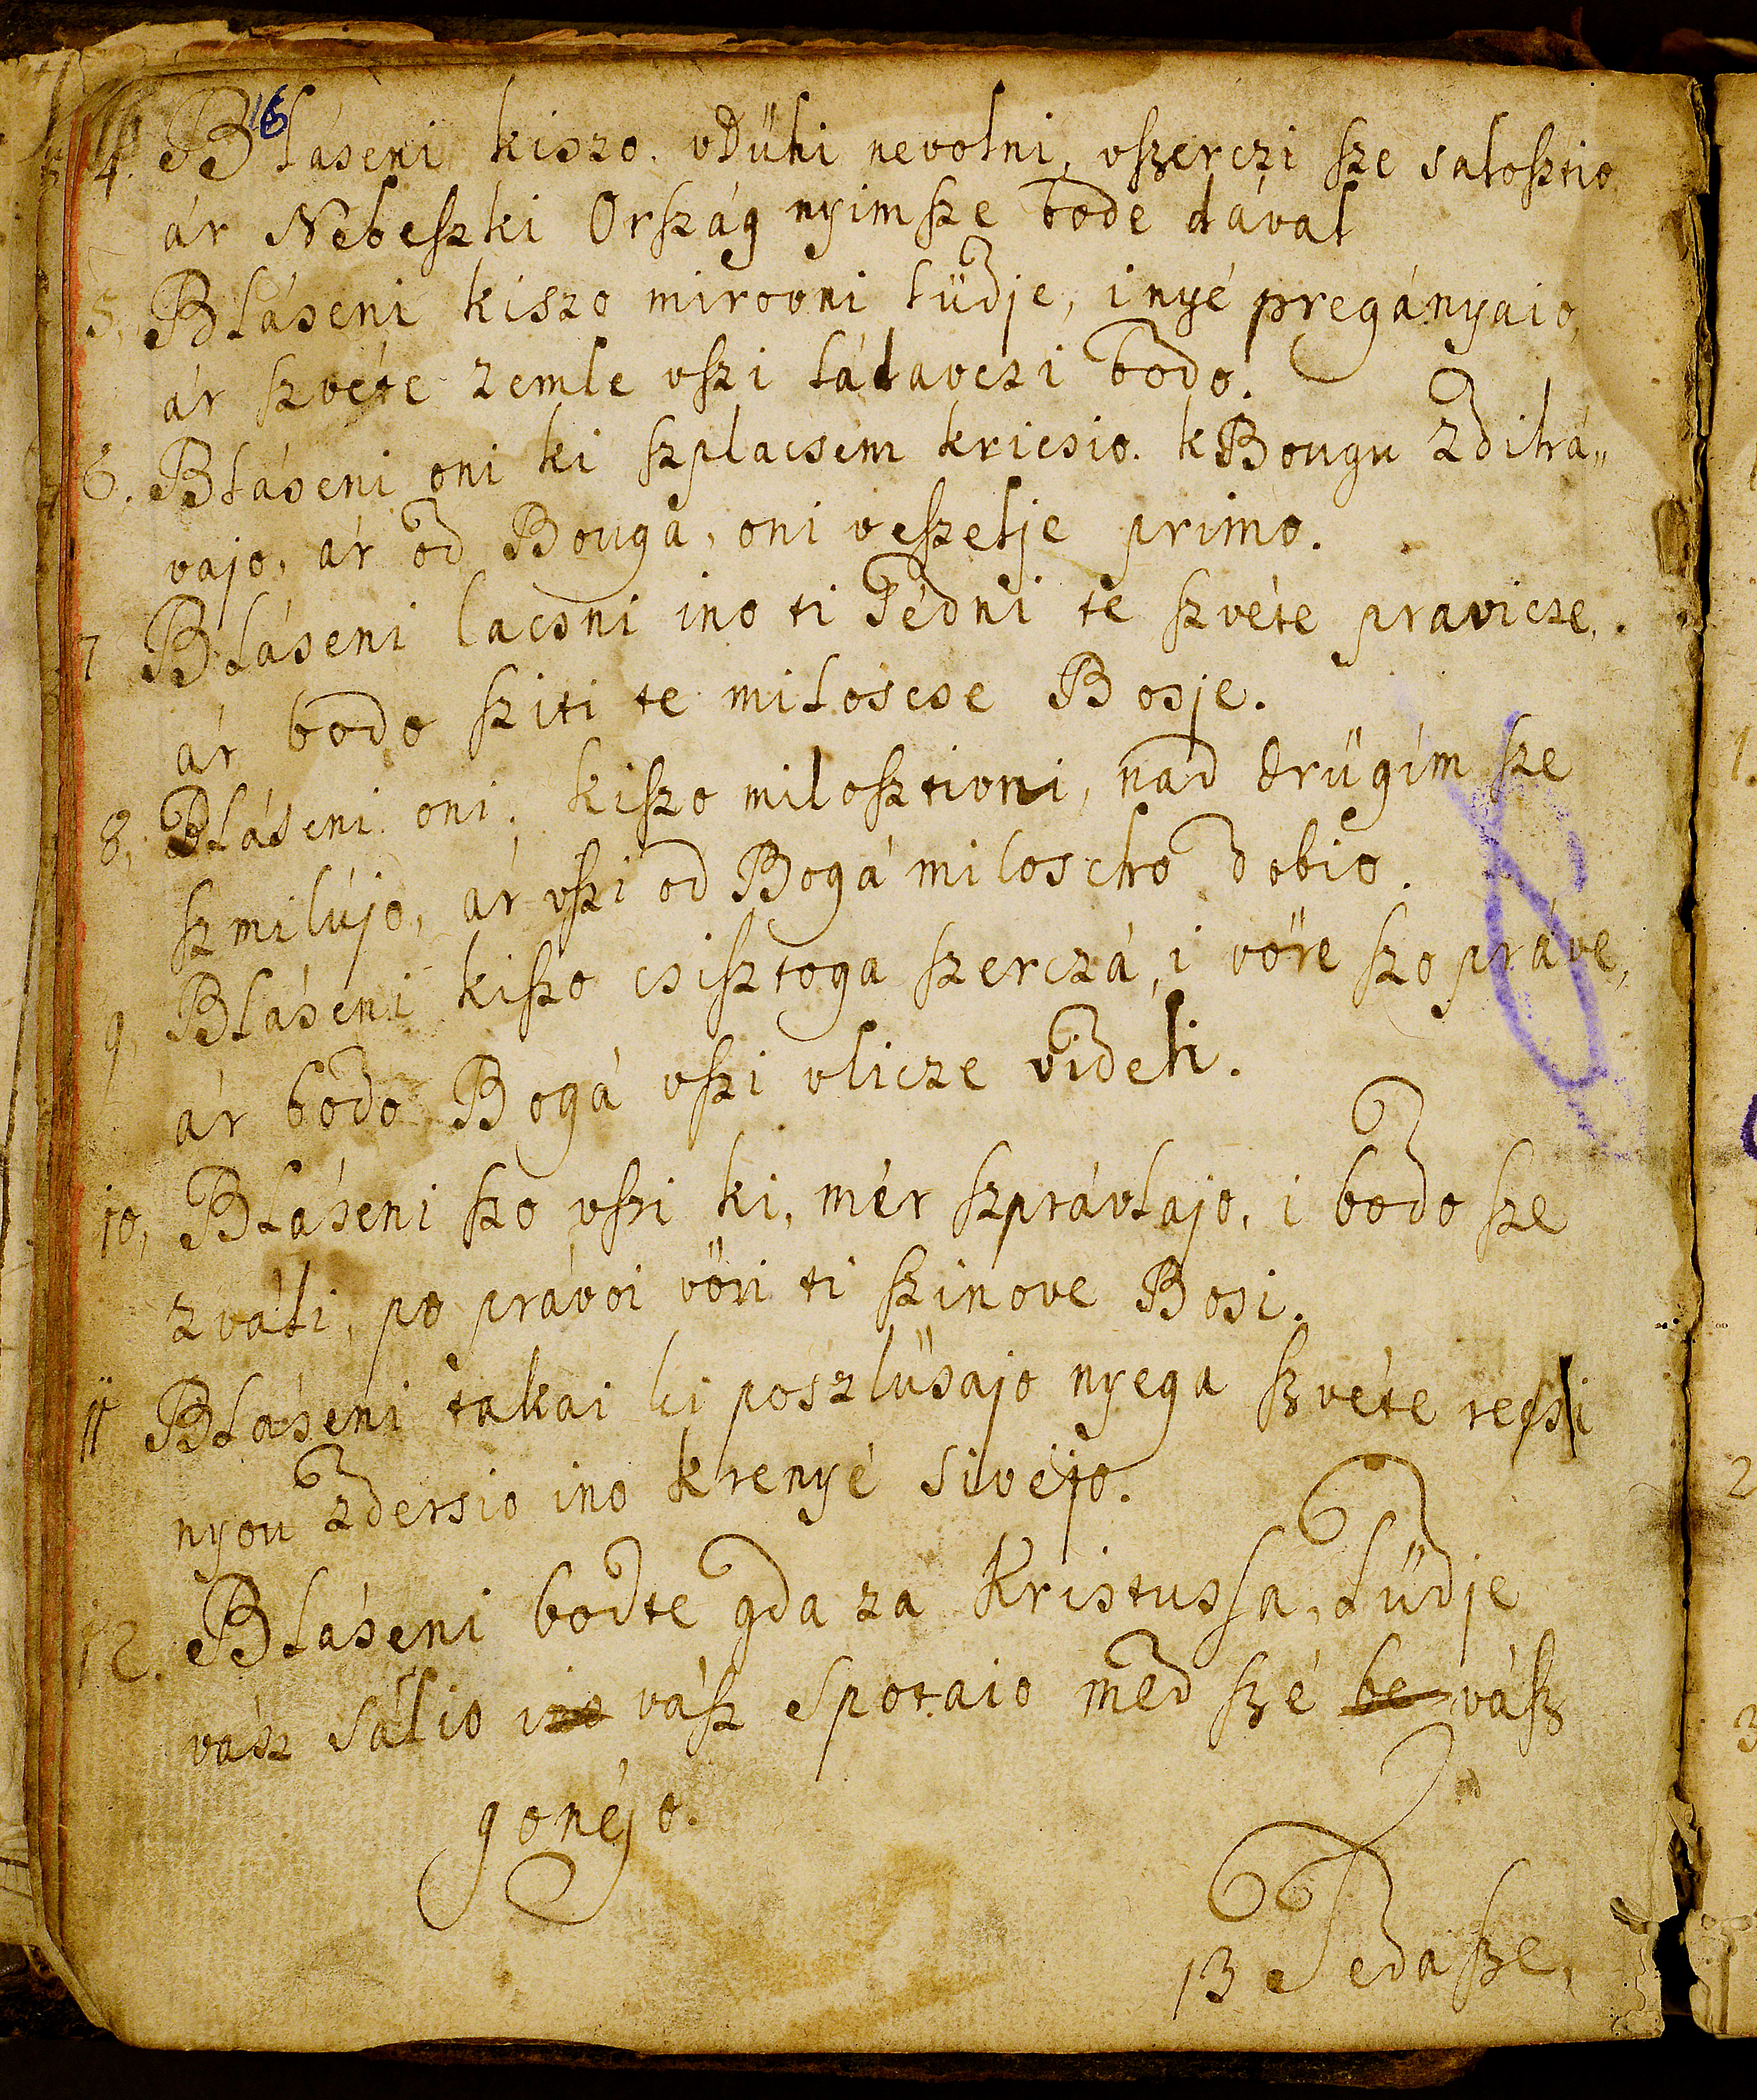 16
4. Bláseni kiszo. vDühi nevolni, vszerczi sze salosztio
ár NebeszkiOrszág nyimsze bode dával
5, Bláseni kiszo mirovni lüdje, inyé pregányaio,
ár szvéte zemle vszi ládavczi bodo.
6. Bláseni oni ki szplacsém kricsio. k Bougu Zdihá„
vajo, ár od Bouga, oni veszelje primo.
7 Bláseni lacsni ino ti Fédni te szvéte pravicze,
ár bodo sziti te miloscse Bosje.
8, Bláseni oni, kiszo milosztivni, nad drügim sze
szmilújo, ár vszi od Bogá miloscho dobio.
9, Bláseni kiszo csisztoga szerczá, i vöre szo práve,
ár bodo Bogá vszi vlicze videli.
10, Bláseni szo vszi ki, mér szprávlajo, i bodo sze
zváli, po právoi vöri ti szinove Bosi.
11 Bláseni takai ki poszlüsajo nyega szvéte recsi
nyou zdersio ino krenyé sivéjo.
12. Bláseni bodte gda za Kristussa, lüdje
vász sálio ino vász Spotaio med szé be vász
gonéjo.
13 Tedasze,